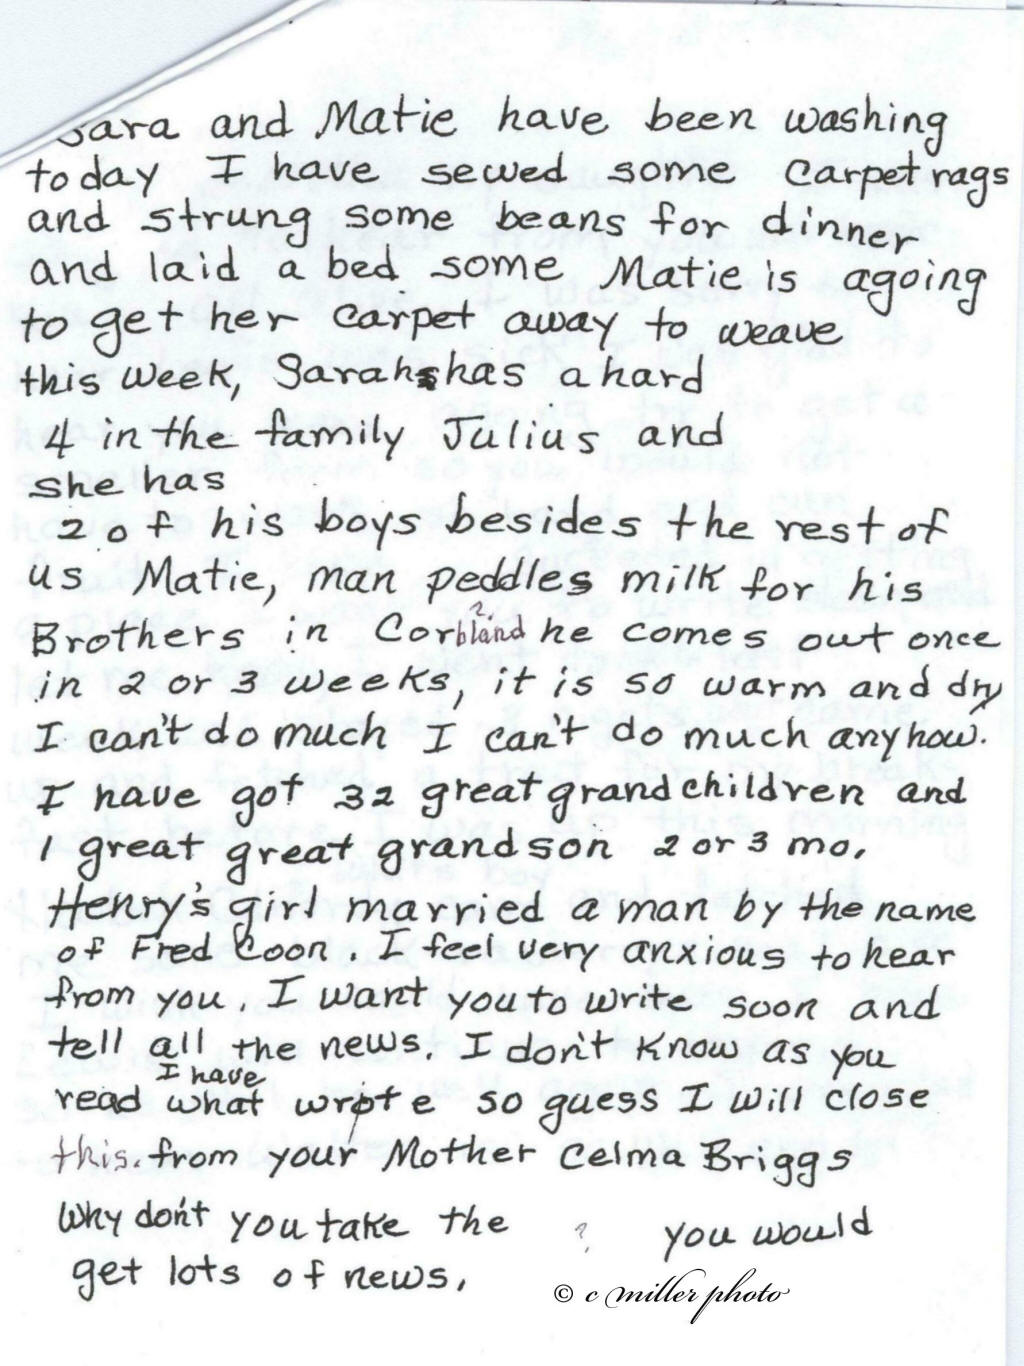 Sara and Matie have been washing
today I have sewed some carpet rags
and strung some beans for dinner
and laid a bed some Matie is agoing
to get her carpet away to weave
this week, Sarah has a hard
4 in the family Julius and
she has
2 of his boys besides the rest of
us Matie, man peddles milk for his
?
Brothers in Corbland he comes out once
in 2 or 3 weeks, it is so warm and dry
I can't do much I can't do much anyhow.
I have got 32 great grandchildren and
1 great great grandson 2 or 3 mo.
Henry's girl married a man by the name
of Fred Coon. I feel very anxious to hear
from you. I want you to write soon and
tell all the news. I don't know as you
I have
read what wrote so guess I will close
this. from your Mother Celma Briggs
Why don't you take the ? you would
get lots of news.
© c miller photo